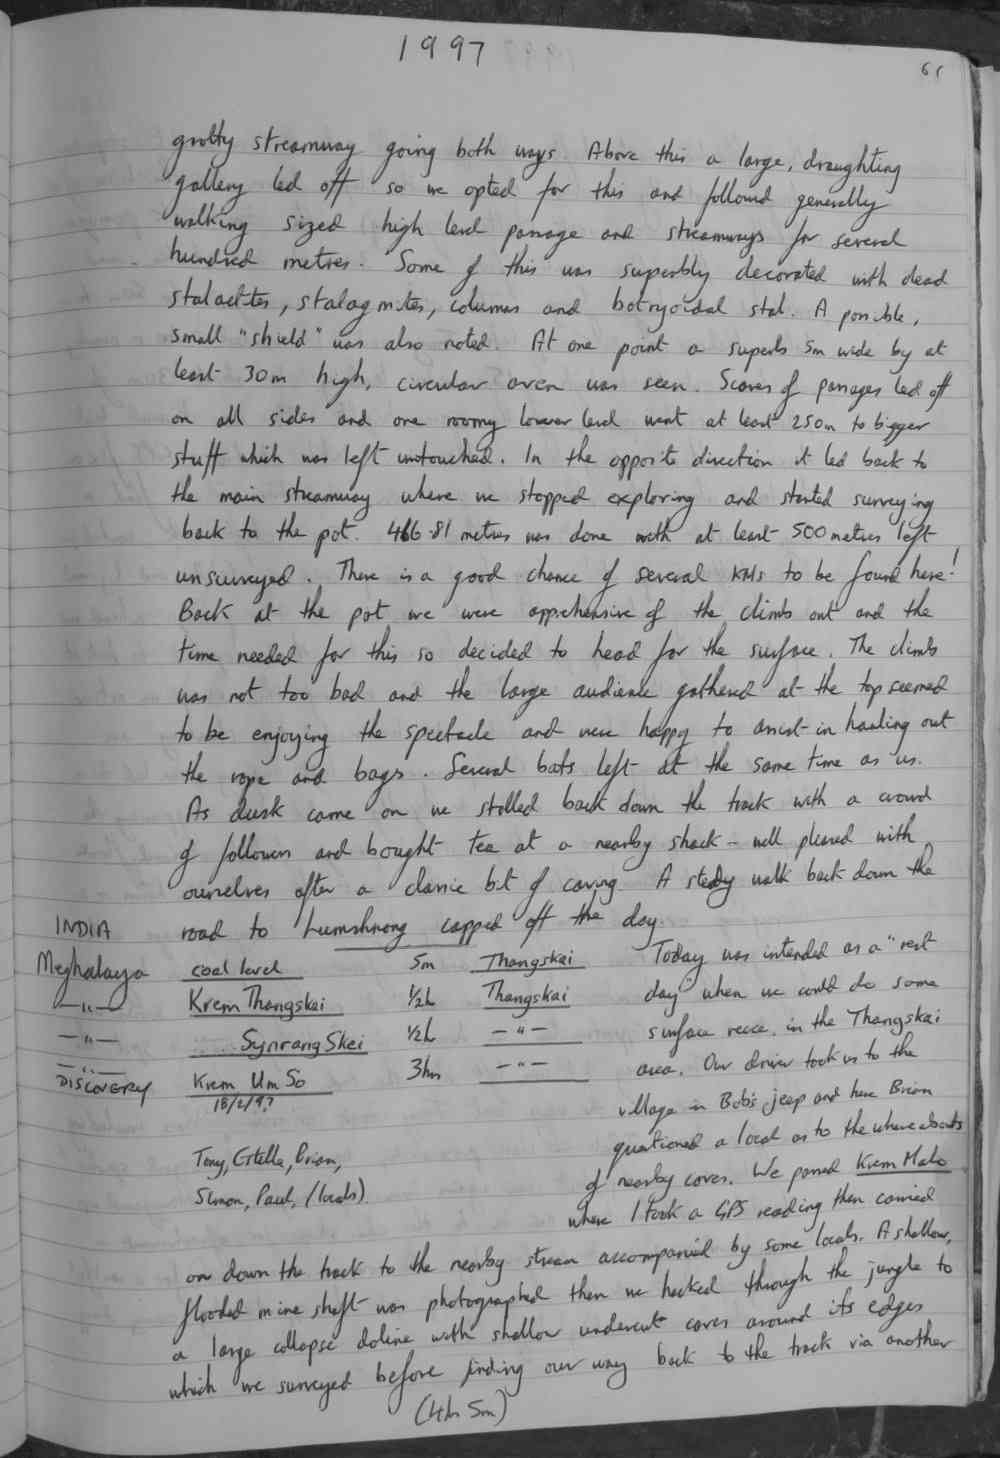 1997
61
grotty streamway going both ways. Above this a large, draughting
gallery led off so we opted for this and followed generally
walking sized high level passage and streamways for several
hundred metres. Some of this was superbly decorated with dead
stalactites, stalagmites, columns and botryoidal stal. A possible,
small "shield" was also noted. At one point a superb 5m wide by at
least 30m high, circular aven was seen. Scores of passages led off
on all sides and one roomy lower level went at least 250m to bigger
stuff which was left untouched. In the opposite direction it led back to
the main streamway where we stopped exploring and started surveying
back to the pot. 466.81 metres was done with at least 500 metres left
unsurveyed. There is a good chance of several KMs to be found here!
Back at the pot we were apprehensive of the climb out and the
time needed for this so decided to head for the surface. The climb
was not too bad and the large audience gathered at the top seemed
to be enjoying the spectacle and were happy to assist in hauling out
the rope and bags. Several bats left at the same time as us.
As dusk came on we strolled back down the track with a crowd
of followers and bought tea at a nearby shack - well pleased with
ourselves after a classic bit of caving. A steady walk back down the
road to Lumshnong capped off the day.
INDIA
Meghalaya coal level 5m Thangskai Today was intended as a "rest
-"- Krem Thangskai ½h Thangskai day" when we could do some
-"- Synrang Skei ½h -"- surface recce. in the Thangskai
-"- Krem Um So 3hrs -"- area. Our driver took us to the
DISCOVERY 18/2/97 village in Bob's jeep and here Brian
questioned a local as to the whereabouts
Tony, Estelle, Brian, of nearby caves. We passed Krem Malo
Simon, Paul, (locals) where I took a GPS reading then carried
on down the track to the nearby stream accompanied by some locals. A shallow,
flooded mine shaft was photographed then we hacked through the jungle to
a large collapse doline with shallow undercut caves around its edges
which we surveyed before finding our way back to the track via another
(4h 5m)